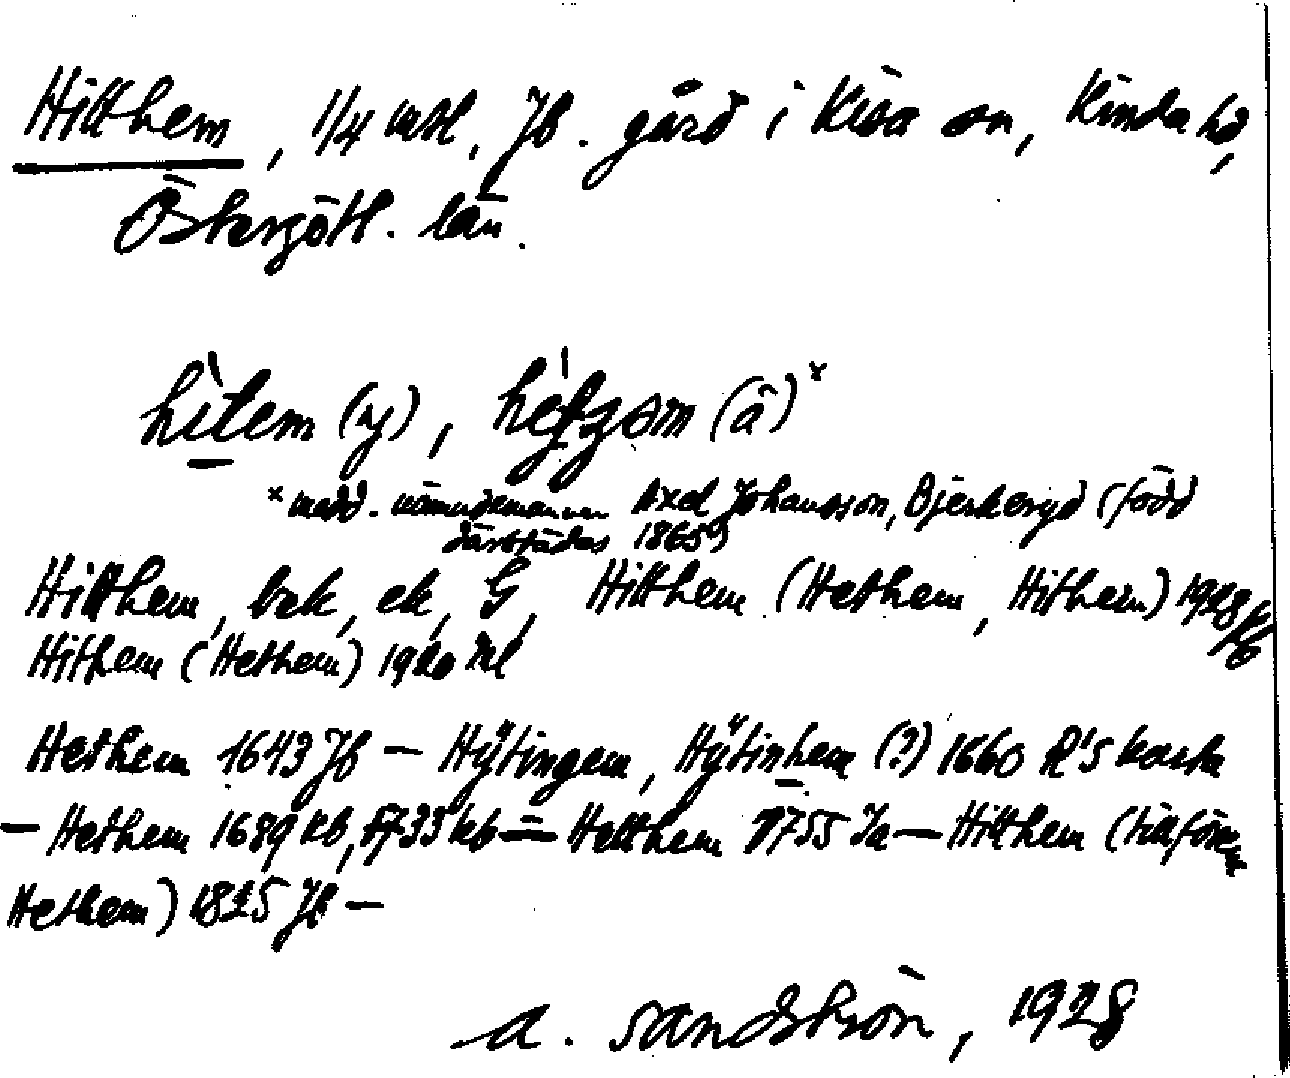 Hitthem, 1/4 mtl. Jb. gård i Kisa sn, Kinda hd,
Östergötl. län.
hìtem (y), hét som (ä)x
x medd. nämndemannen Axel Johansson, Bjerkeryd (född
därstädes 1865)
Hitthem, bek, ek, G, Hitthem (Hethem, Hithem) 1928
Hithem (Hethem) 1920 Ml
Hethem 1643 Jb — Hÿtingem, Hÿtinhem (?) 1660 R's karta
— Hethem 1689 kb, 1733 kb — Hetthem 1755 Ja — Hitthem (tillförne
Hethem) 1825 Jb —
A. Sandström, 1928